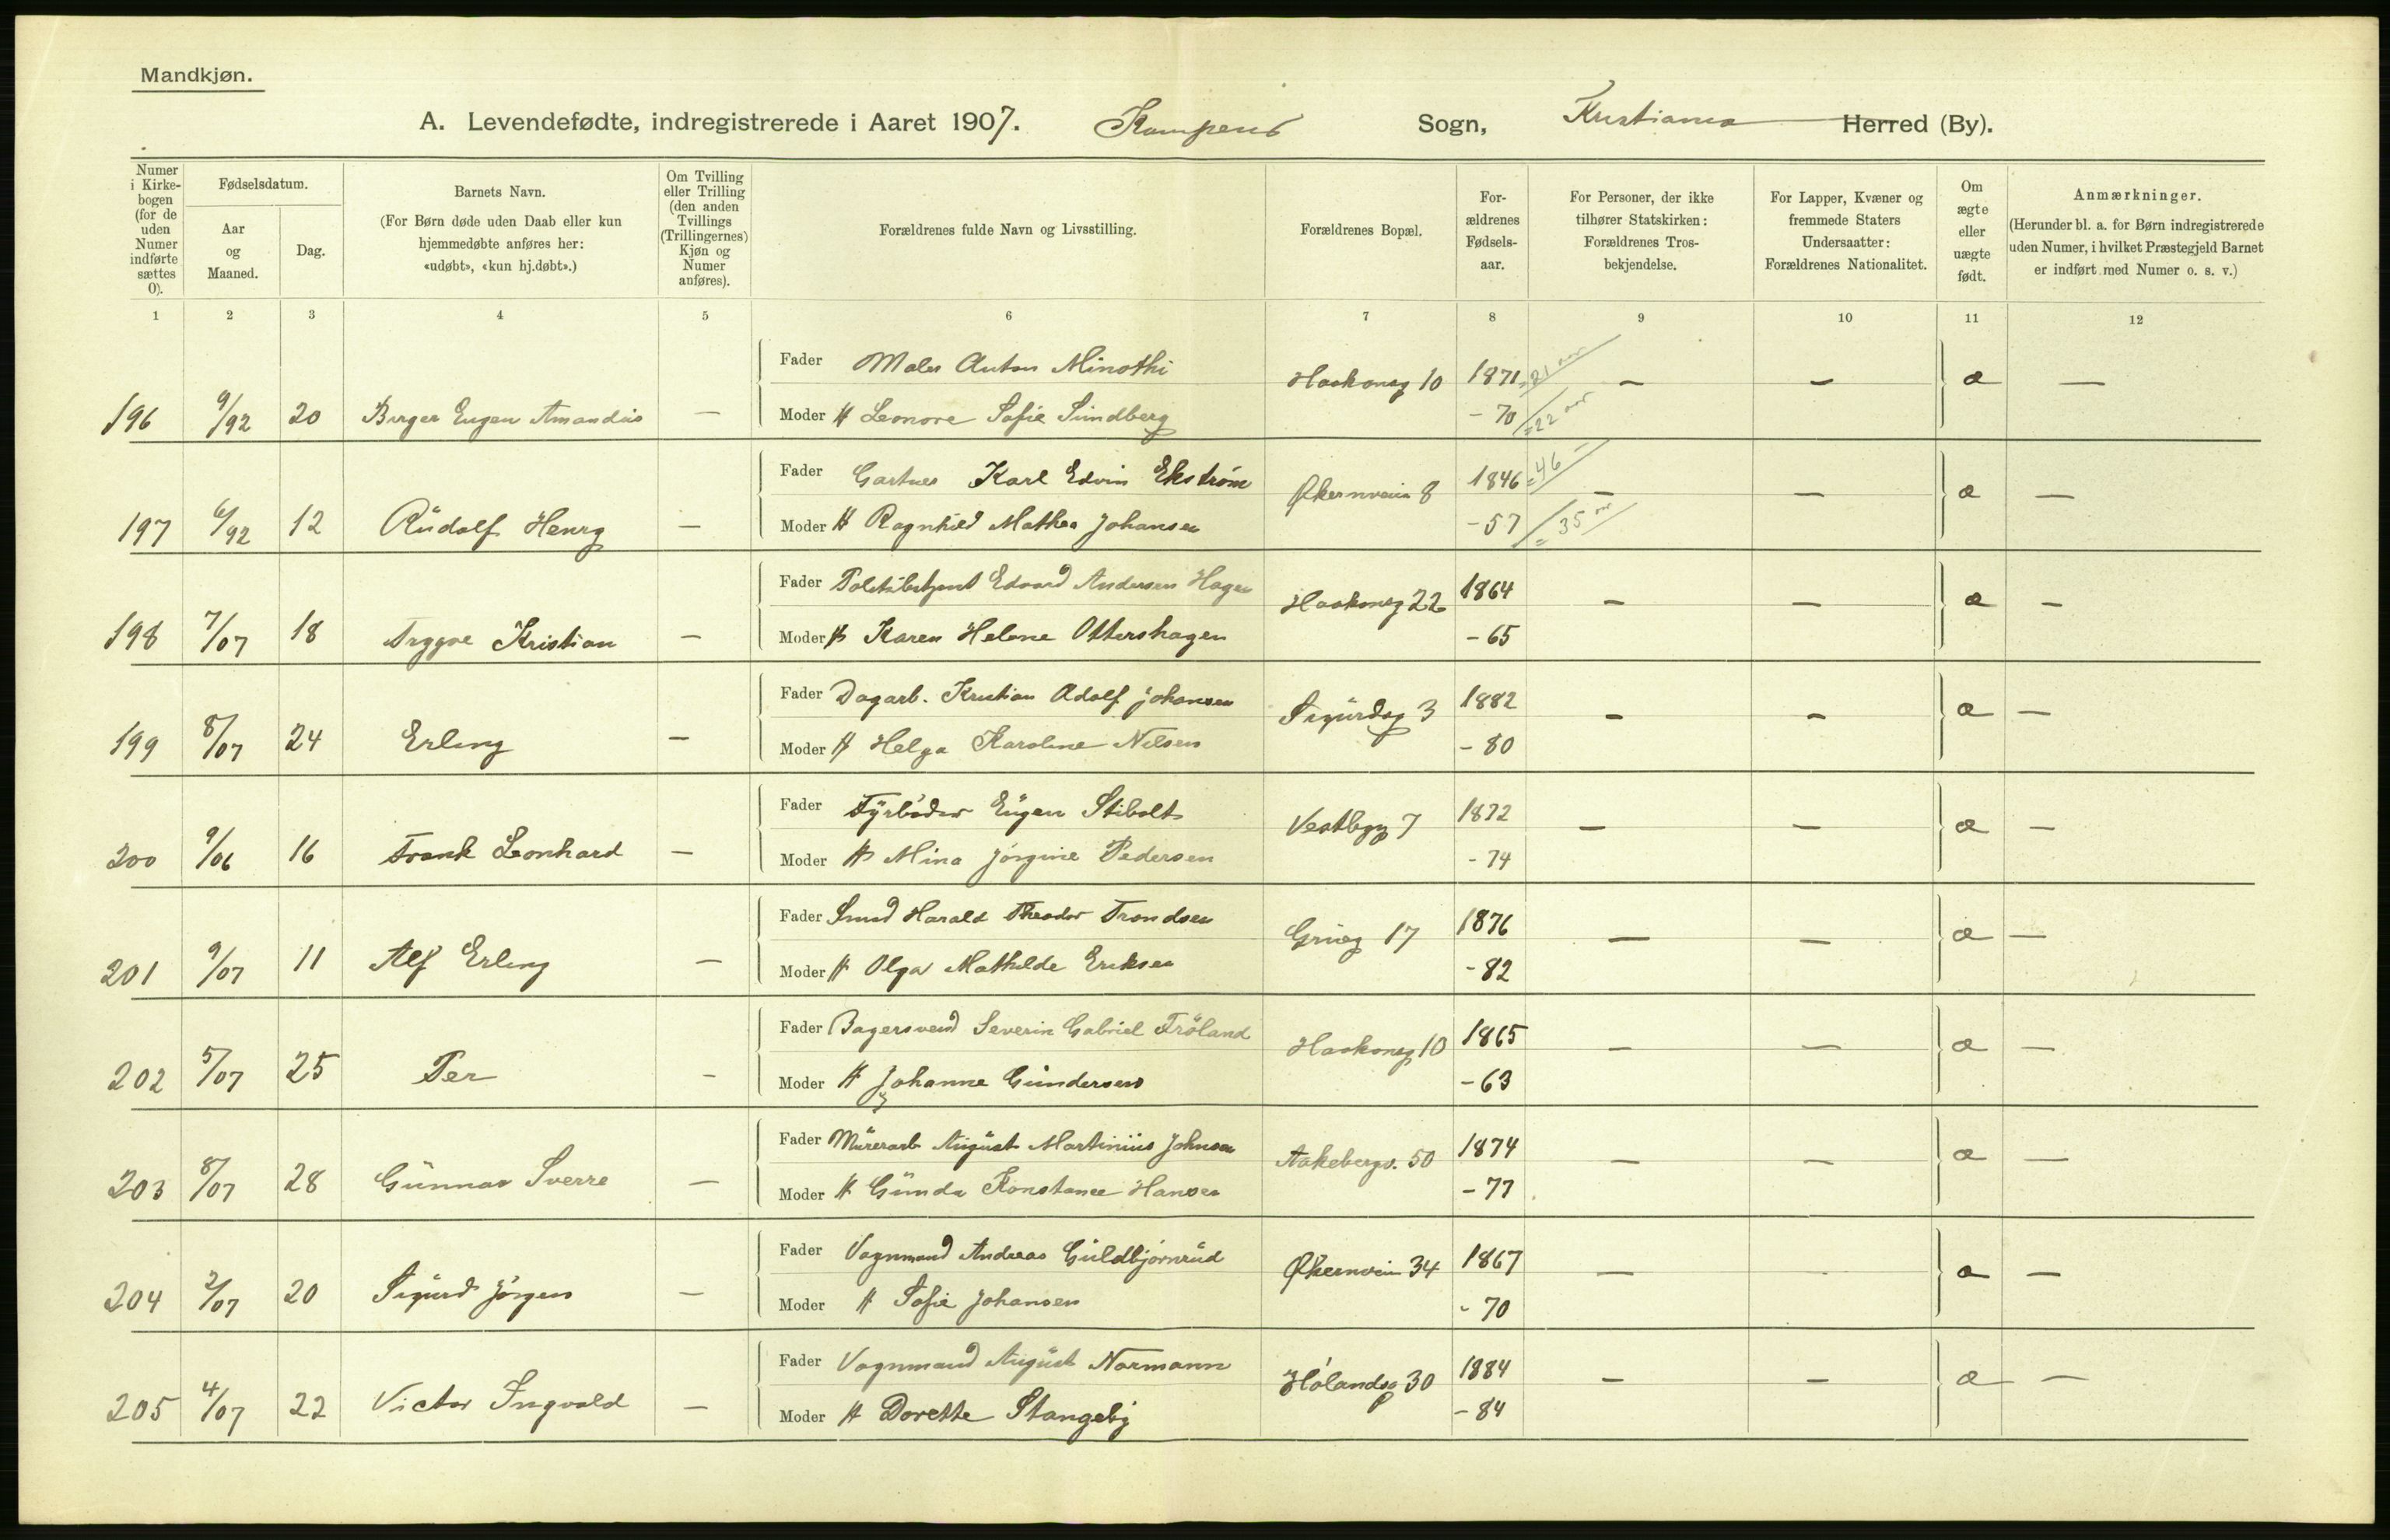 Mandkjøn.
A. Levendefødte, indregistrerede i Aaret 1907. Kampens Sogn, Kristiania Herred (By).
Numer i Kirkebogen (for de uden Numer indførte sættes O).
Fødselsdatum.
Aar og Maaned.
Dag.
Barnets Navn.
(For Børn døde uden Daab eller kun hjemmedøbte anføres her: «udøbt», «kun hj.døbt».)
Om Tvilling eller Trilling (den anden Tvillings (Trillingernes) Kjøn og Numer anføres).
Forældrenes fulde Navn og Livsstilling.
Forældrenes Bopæl.
Forældrenes Fødselsaar.
For Personer, der ikke tilhører Statskirken: Forældrenes Trosbekjendelse.
For Lapper, Kvæner og fremmede Staters Undersaatter: Forældrenes Nationalitet.
Om ægte eller uægte født.
Anmærkninger.
(Herunder bl. a. for Børn indregistrerede uden Numer, i hvilket Præstegjeld Barnet er indført med Numer o. s. v.)
1 2 3 4 5 6 7 8 9 10 11 12
Fader Maler Anton Minothi Haakonsg 10 1871 = 21 aar — — æ —
196 9/92 20 Birger Eugen Amandus — Moder H Leonore Sofie Sundberg - 70 = 22 aar
Fader Gartner Karl Edvin Ekstrøm Økernveien 8 1846 = 46 — — — æ —
197 6/92 12 Rudolf Henry — Moder H Ragnhild Mathea Johansen - 57 = 35
Fader Politibetjent Edvard Andersen Hagen Haakonsg 22 1864 — — æ —
198 7/07 18 Trygve Kristian — Moder H Karen Helene Ottershagen - 65
Fader Dagarb. Kristian Adolf Johansen Sigurdsg 3 1882 — — æ —
199 8/07 24 Erling — Moder H Helga Karoline Nilsen - 80
Fader Fyrbøder Eugen Stibolt Vestbyg 7 1872 — — æ —
200 9/06 16 Frank Leonhard — Moder H Mina Jørgine Pedersen - 74
Fader Smed Harald Theodor Trondsen Grieg 17 1876 — — æ —
201 9/07 11 Alf Erling — Moder H Olga Mathilde Eriksen - 82
Fader Bagersvend Severin Gabriel Frøland Haakonsg 10 1865 — — æ —
202 5/07 25 Per — Moder H Johanne Gundersen - 63
Fader Murerarb August Martinius Johnsen Aakebergv. 50 1874 — — æ —
203 8/07 28 Gunnar Sverre — Moder H Gunda Konstance Hansen - 77
Fader Vognmand Andreas Guldbjørnrud Økernveien 34 1867 — æ —
204 2/07 20 Sigurd Jørgen — Moder H Sofie Johansen - 70
Fader Vognmand August Normann Hølandsg 30 1884 — — æ —
205 4/07 22 Victor Ingvald — Moder H Dorette Stangeby - 84